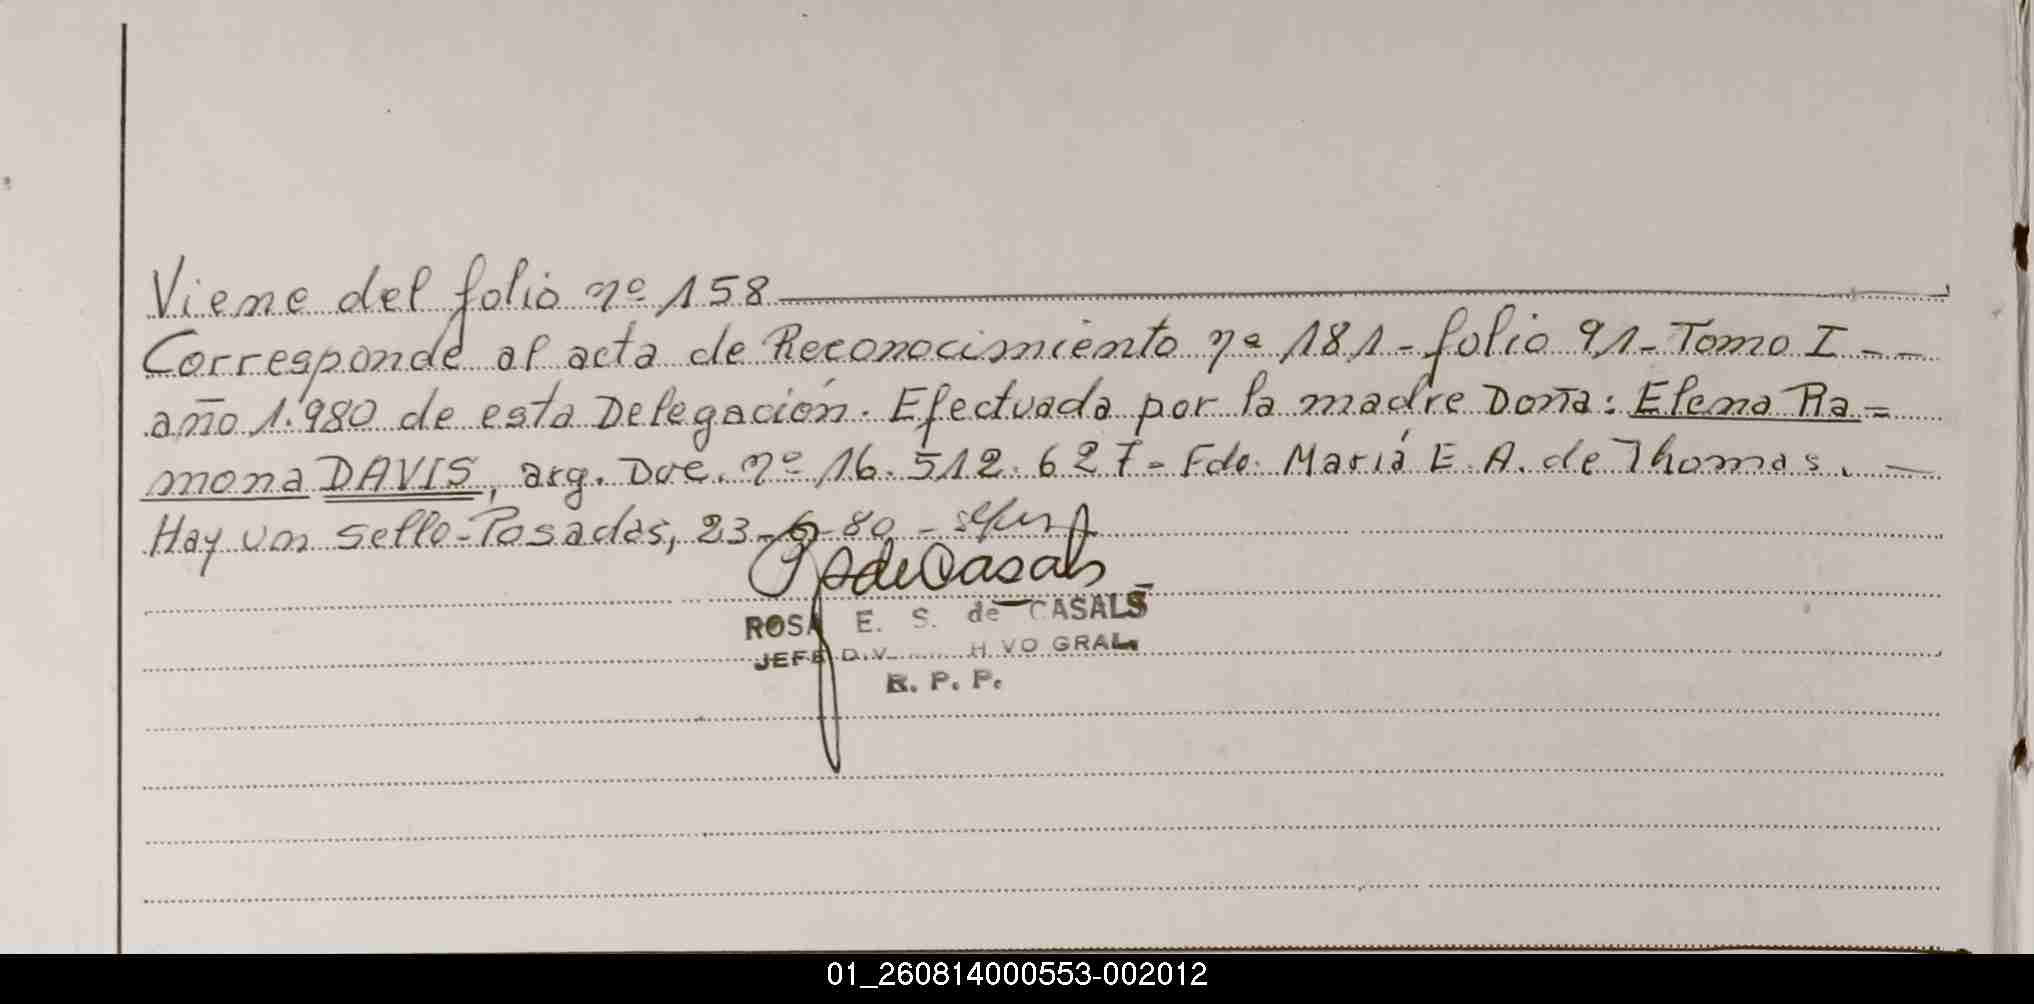 Viene del folio nº 158
Corresponde al acta de Reconocimiento nº 181 - folio 91 - Tomo I - -
año 1.980 de esta Delegación. Efectuada por la madre Doña: Elena Ra=
mona DAVIS, arg. Doc. nº 16.512.627 - Fdo. María E. A. de Thomas. -
Hay un sello - Posadas, 23-6-80 -
ROSA E. S. de CASALS
JEFE DIV
VO GRAL.
R. P. P.
01_260814000553-002012